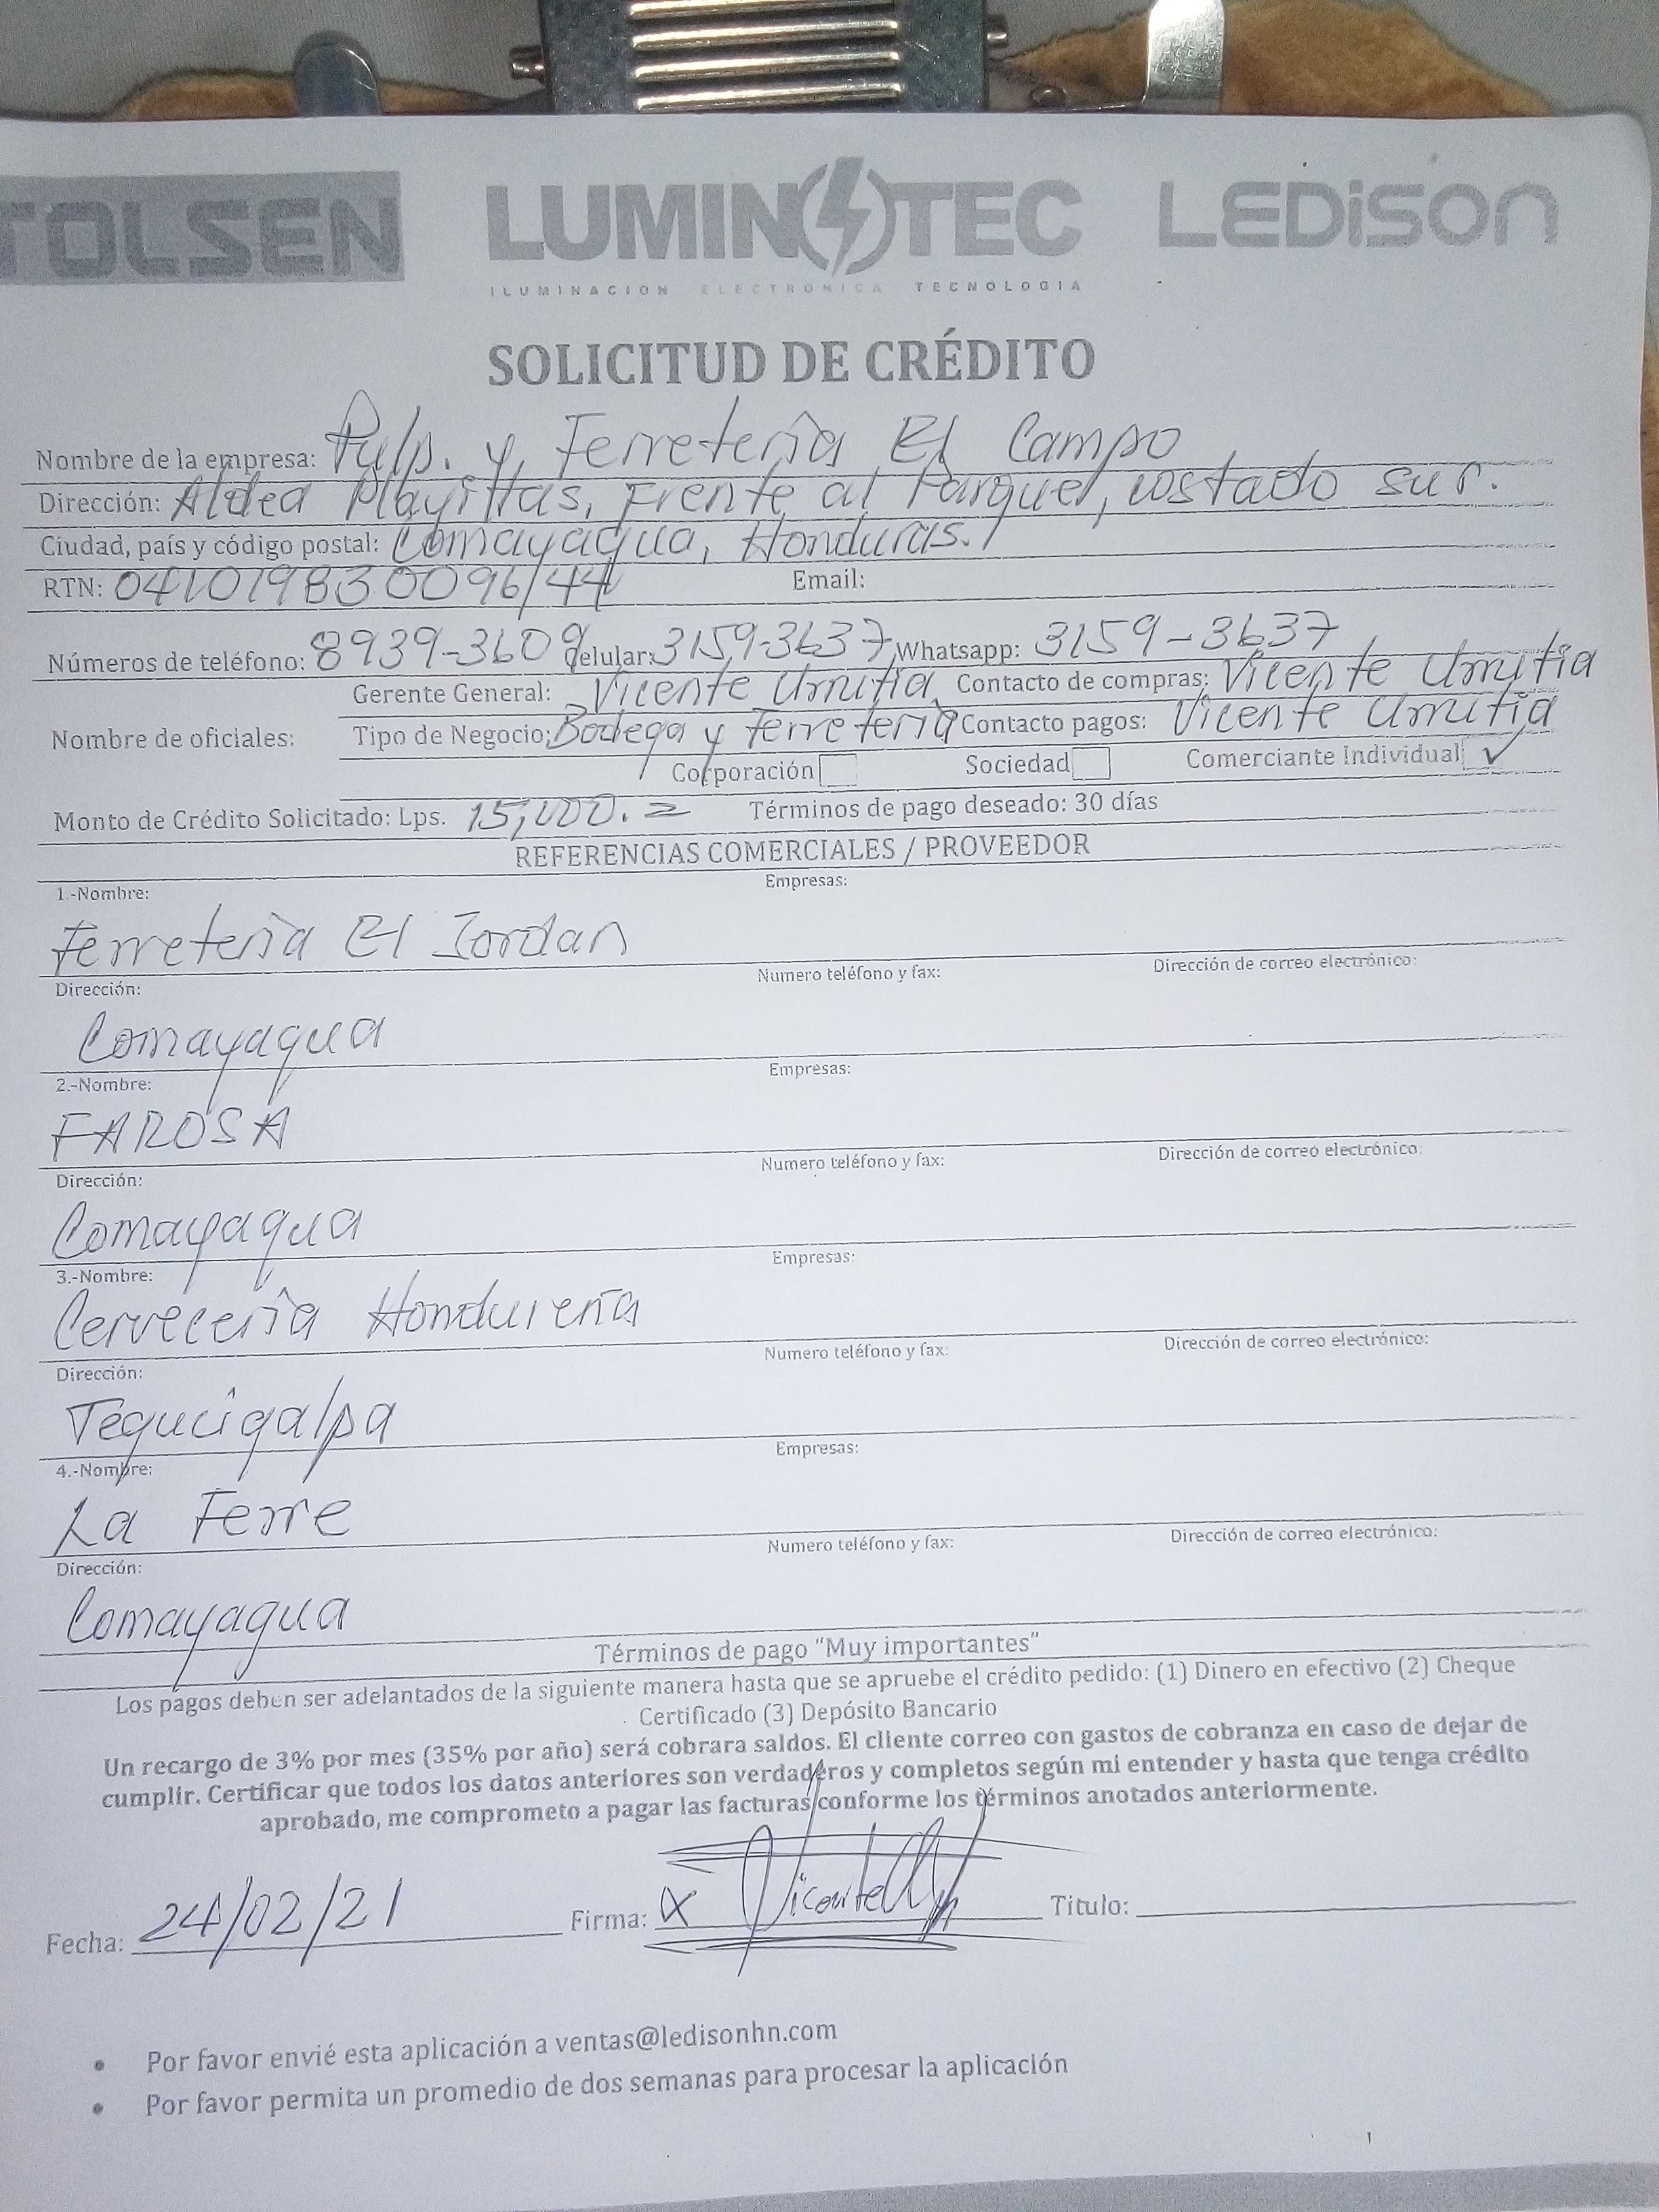 TOLSEN LUMINOTEC LEDISON
ILUMINACION ELECTRONICA TECNOLOGIA
SOLICITUD DE CRÉDITO
Nombre de la empresa: Pulp. y Ferretería El Campo
Dirección: Aldea Playitas, Frente al Parque, costado sur.
Ciudad, país y código postal: Comayagua, Honduras.
RTN: Email:
Números de teléfono: 8939-3609 Celular: 3159-3637 Whatsapp: 3159-3637
Gerente General: Vicente Urrutia Contacto de compras: Vicente Urrutia
Nombre de oficiales: Tipo de Negocio: Bodega y Ferretería Contacto pagos: Vicente Urrutia
Corporación Sociedad Comerciante Individual ✓
Monto de Crédito Solicitado: Lps. 15,000.= Términos de pago deseado: 30 días
REFERENCIAS COMERCIALES / PROVEEDOR
1.-Nombre: Empresas:
Ferretería El Jordan
Dirección: Numero teléfono y fax: Dirección de correo electrónico:
Comayagua
2.-Nombre: Empresas:
FAROSA
Dirección: Numero teléfono y fax: Dirección de correo electrónico:
Comayagua
3.-Nombre: Empresas:
Cervecería Hondureña
Dirección: Numero teléfono y fax: Dirección de correo electrónico:
Tegucigalpa
4.-Nombre: Empresas:
La Ferre
Dirección: Numero teléfono y fax: Dirección de correo electrónico:
Comayagua
Términos de pago "Muy importantes"
Los pagos deben ser adelantados de la siguiente manera hasta que se apruebe el crédito pedido: (1) Dinero en efectivo (2) Cheque
Certificado (3) Depósito Bancario
Un recargo de 3% por mes (35% por año) será cobrara saldos. El cliente correo con gastos de cobranza en caso de dejar de
cumplir. Certificar que todos los datos anteriores son verdaderos y completos según mi entender y hasta que tenga crédito
aprobado, me comprometo a pagar las facturas conforme los términos anotados anteriormente.
Fecha: 24/02/21 Firma: X Titulo:
• Por favor envié esta aplicación a ventas@ledisonhn.com
• Por favor permita un promedio de dos semanas para procesar la aplicación